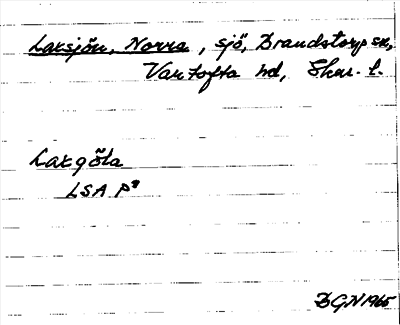 Laxsjön, Norra, sjö, Brandstorp sn,
Vartofta hd, Skar. l.
Laxgöla
LSA P8
BGN 1965